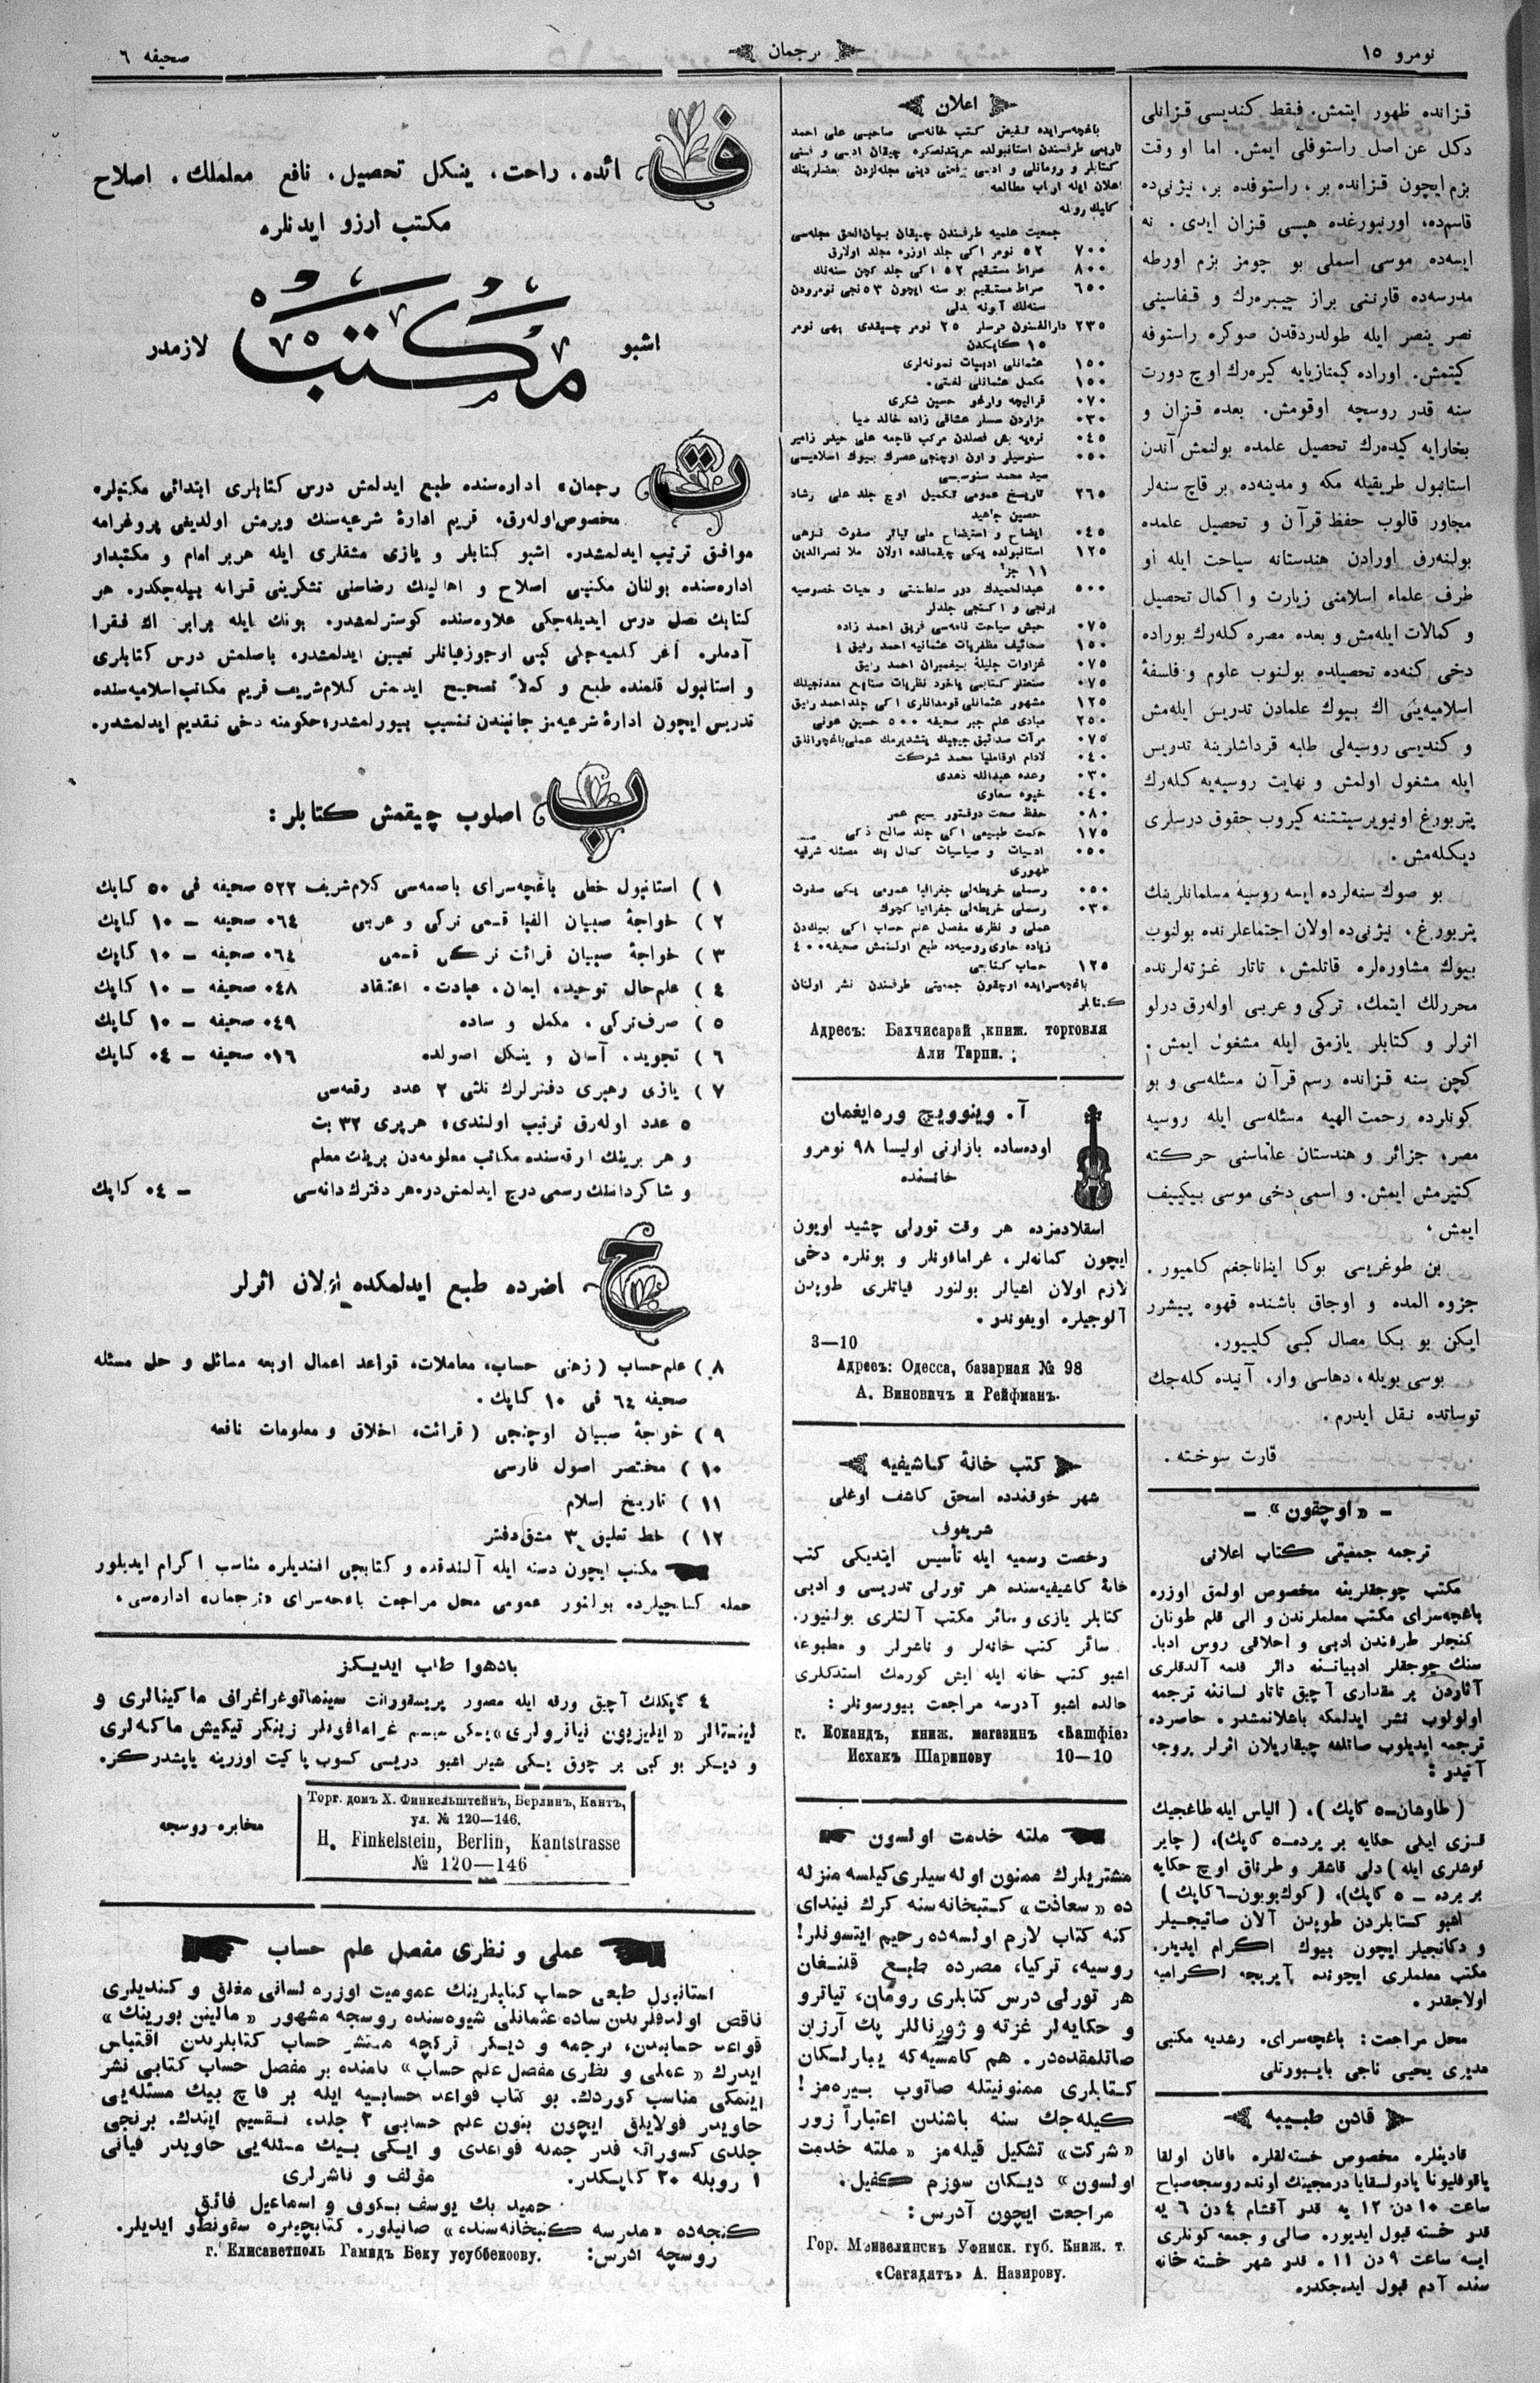 نومرو ١٥
ترجمان
صحيفه ٦
قزانده ظهور ايتمش. فقط كنديسى قزانلى
دكل عن اصل راستوفلى ايمش. اما او وقت
بزم ايچون قزانده بر، راستوفده بر، نيژنى‌ده
قاسم‌ده، اورنبورغده هپسى قزان ايدى. نه
ايسه‌ده موسى اسملى بو چومز بزم اورطه
مدرسه‌ده قارننى براز چيبره‌رك و قفاسينى
نصر ينصر ايله طولدردقدن صوكره راستوفه
كيتمش. اوراده كيمنازيايه كيره‌رك اوچ دورت
سنه قدر روسچه اوقومش. بعده قزان و
بخارايه كيده‌رك تحصيل علمده بولنمش آندن
استانبول طريقيله مكه و مدينه‌ده بر قاچ سنه‌لر
مجاور قالوب حفظ قرآن و تحصيل علمده
بولنه‌رق اورادن هندستانه سياحت ايله او
طرف علماء اسلامنى زيارت و اكمال تحصيل
و كمالات ايله‌مش و بعده مصره كله‌رك بوراده
دخى كنه‌ده تحصيلده بولنوب علوم و فلسفۀ
اسلاميه‌ينى اك بيوك علمادن تدريس ايله‌مش
و كنديسى روسيه‌لى طلبه قرداشلرينه تدريس
ايله مشغول اولمش و نهايت روسيه‌يه كله‌رك
پتربورغ اونيويرسيتتنه كيروب حقوق درسلرى
ديكله‌مش.
بو صوك سنه‌لرده ايسه روسيه مسلمانلرينك
پتربورغ، نيژنى‌ده اولان اجتماعلرنده بولنوب
بيوك مشاوره‌لره قاتلمش، تاتار غزته‌لرنده
محررلك ايتمك، تركى و عربى اوله‌رق درلو
اثرلر و كتابلر يازمق ايله مشغول ايمش.
كچن سنه قزانده رسم قرآن مسئله‌سى و بو
كونلرده رحمت الهيه مسئله‌سى ايله روسيه
مصر، جزائر و هندستان علماسنى حركته
كتيرمش ايمش. و اسمى دخى موسى بيكييف
ايمش.
بن طوغريسى بوكا اينانه‌جغم كلميور.
جزوه المده و اوجاق باشنده قهوه پيشرر
ايكن بو بكا مصال كبى كلييور.
بوسى بويله، دهاسى وار، آنيده كله‌جك
توساتده نقل ايدرم.
قارت سوخته.
— «اوچقون» —
ترجمه جمعيتى كتاب اعلانى
مكتب چوجقلرينه مخصوص اولمق اوزره
باغچه‌سراى مكتب معلملرندن و الى قلم طوتان
كنجلر طرفندن ادبى و اخلاقى روس ادبا.
سنك چوجقلر ادبياتنه دائر قلمه آلدقلرى
آثاردن بر مقدارى آچق تاتار لساننه ترجمه
اولنوب نشر ايدلمكه باعلانمشدر. حاضرده
ترجمه ايديلوب صاتلغه چيقاريلان اثرلر بروجه
آتيدر:
(طاوشان—٥ كاپك)، (الياس ايله طاغجيك
قزى ايلى حكايه بر يرده—٥ كاپك)، (چاير
قوشلرى ايله) دلى قاشقر و طرناق اوچ حكايه
بر يرده — ٥ كاپك)، (كوك بويون—٦ كاپك)
اشبو كتابلردن طوپدن آلان صاتيجيلر
و دكانجيلر ايچون بيوك اكرام ايديلر.
مكتب معلملرى ايچونده آيريجه اكراميه
اولاجقدر.
محل مراجعت: باغچه‌سراى، رشديه مكتبى
مديرى يحيى ناجى بايبورتلى
قادن طبيبه
قادينلره مخصوص خسته‌لقلره باقان اولغا
ساعت ١٠ دن ١٢ يه قدر آقشام ٤ دن ٦ يه
قدر خسته قبول ايديور. صالى و جمعه كونلرى
ايسه ساعت ٩ دن ١١ . قدر شهر خسته خانه
سنده آدم قبول ايده‌جكدر.
اعلان
جمعيت علميه طرفندن چيقان بيان‌الحق مجله‌سى
٥٢ نومر اكى جلد اوزره مجلد اولارق ٧٠٠
صراط مستقيم ٥٢ اكى جلد كچن سنه‌نك ٨٠٠
صراط مستقيم بو سنه ايچون ٥٣ نجى نومرودن ٦٥٠
سنه‌لك آبونه بدلى
دارالفنون درسلر ٢٥ نومر چيقدى بهى نومر ٢٣٥
١٥ كاپكدن
عثمانلى ادبيات نمونه‌لرى ١٥٠
مكمل عثمانلى لغتى. ١٥٠
مزاردن سسلر عشاقى زاده خالد ضيا ٠٣٠
سيد محمد سنوسيسى
تاريخ عمومى تكميل اوچ جلد على رشاد ٢٦٥
حسين جاهيد
استانبولده يكى چيقماقده اولان ملا نصرالدين ١٢٥
١١ جزء
عبدالحميدك دور سلطنتى و حيات خصوصيه ٥٠٠
برنجى و اكنجى جلدلر
حبش سياحت نامه‌سى فريق احمد زاده ٠٧٥
صحائيف مظفريات عثمانيه احمد رفيق ٤ ١٥٠
غزاوات جليلۀ پيغمبران احمد رفيق ٠٧٥
مشهور عثمانلى قومدانلرى اكى جلد احمد رفيق ١٢٥
مبادى علم جبر صحيفه ٥٠٠ حسين عونى ٢٥٠
خيوه سماوى ٠٤٠
حفظ صحت دوقتور بسيم عمر ٠٨٠
حكمت طبيعى اكى جلد صالح ذكى ١٧٥
ادبيات و سياسيات كمال بك مسئله شرقيه ٠٥٠
ظهورى
رسملى خريطه‌لى جغرافيا عمومى يكى صفوت ٠٥٠
رسملى خريطه‌لى جغرافيا كچوك ٠٣٠
عملى و نظرى مفصل علم حساب اكى بيكدن
زياده حاوى روسيه‌ده طبع اولنمش صحيفه ٤٠٠
حساب كتابى ١٢٥
باغچه‌سرايده اوچقون جمعيتى طرفندن نشر اولنان
كتابلر
Адресъ: Бахчисарай, книж. торговля
Али Тарпи.
آ. وينوويچ و رەايفمان
اوده‌ساده بازارنى اوليسا ٩٨ نومرو
خانسنده
اسقلادمزده هر وقت تورلى چشيد اويون
ايچون كمانه‌لر، غرامافونلر و بونلره دخى
لازم اولان اشيالر بولنور فياتلرى طوپدن
آلوجيلره اويغوندر.
3—10
Адресъ: Одесса, базарная № 98
А. Виновичъ и Рейфманъ.
كتب خانۀ كاشيفيه
شهر خوقندده اسحق كاشف اوغلى
شريفوف
رخصت رسميه ايله تأسيس ايتديكى كتب
خانۀ كاشيفيه‌سنده هر تورلى تدريسى و ادبى
كتابلر يازى و سائر مكتب آلتلرى بولنيور.
سائر كتب خانه‌لر و ناشرلر و مطبوعه
اشبو كتب خانه ايله ايش كورمك استدكلرى
حالده اشبو آدرسه مراجعت بيورسونلر:
г. Кокандъ, книж. магазинъ «Кашфіе»
Исхакъ Шарипову 10—10
ملته خدمت اولسون
مشتريلرك ممنون اوله سيلرى كيلسه منزله
ده «سعادت» كتبخانه‌سنه كرك نيندای
كنه كتاب لازم اولسه‌ده رحيم ايتسونلر!
روسيه، تركيا، مصرده طبع قلنغان
هر تورلى درس كتابلرى رومان، تياترو
و حكايه‌لر غزته و ژورناللر پك آرزان
صاتلمقده‌در. هم كامسيه‌كه يبارلكان
كتابلرى ممنونيتله صاتوب بيره‌مز!
كيله‌جك سنه باشندن اعتبارآ زور
«شركت» تشكيل قيله‌مز «ملته خدمت
اولسون» ديكان سوزم كفيل.
مراجعت ايچون آدرس:
Гор. Мензелинскъ Уфимск. губ. Книж. т.
«Сагадатъ» А. Назирову.
فائده، راحت، ينكل تحصيل، نافع معلملك، اصلاح
مكتب ارزو ايدنلره
اشبو مكتب لازمدر
ترجمان» اداره‌سنده طبع ايدلمش درس كتابلرى ابتدائى مكتبلره
مخصوص اوله‌رق، قريم ادارۀ شرعيه‌سنك ويرمش اولديغى پروغرامه
موافق ترتيب ايدلمشدر. اشبو كتابلر و يازى مشقلرى ايله هربر امام و مكتبدار
اداره‌سنده بولنان مكتبى اصلاح و اهالينك رضاسنى تشكرينى قزانه بيله‌جكدر. هر
كتابك نصل درس ايديله‌جكى علاوه‌سنده كوسترلمشدر. بونك ايله برابر اك فقرا
آدملره آغر كلميه‌جك كبى اوجوز فياتلر تعيين ايدلمشدر. باصلمش درس كتابلرى
و استانبول قلمنده طبع و كمالاً تصحيح ايدلمش كلام شريف قريم مكاتب اسلاميه‌سنده
تدريس ايچون ادارۀ شرعيه‌مز جانبندن تنسيب بيورلمشدر؛ حكومته دخى تقديم ايدلمشدر.
باصلوب چيقمش كتابلر:
١) استانبول خطى باغچه‌سراى باصمه‌سى كلام شريف ٥٢٢ صحيفه فى ٥٠ كاپك
٢) خواجۀ صبيان الفبا قسمى تركى و عربى ٠٦٤ صحيفه — ١٠ كاپك
٣) خواجۀ صبيان قرائت تركى قسمى ٠٦٤ صحيفه — ١٠ كاپك
٤) علم‌حال توحيد، ايمان، عبادت، اعتقاد ٠٤٨ صحيفه — ١٠ كاپك
٥) صرف تركى، مكمل و ساده ٠٤٩ صحيفه — ١٠ كاپك
٦) تجويد، آسان و ينكل اصولده ٠١٦ صحيفه — ٠٤ كاپك
٧) يازى رهبرى دفترلرك ثلثى ٢ عدد رقعه‌سى
٥ عدد اوله‌رق ترتيب اولندى، هر برى ٣٢ بت
و هر برينك ارقه‌سنده مكاتب معلومه‌دن برينك معلم
و شاكردانك رسمى درج ايدلمش‌در، هر دفترك دانه‌سى — ٠٤ كاپك
حاضرده طبع ايدلمكده اولان اثرلر
٨) علم حساب (زهنى حساب، معاملات، قواعد اعمال اربعه مسائل و حل مسئله
صحيفه ٦٤ فى ١٠ كاپك.
٩) خواجۀ صبيان اوچنجى (قرائت، اخلاق و معلومات نافعه
١٠) مختصر اصول فارسى
١١) تاريخ اسلام
١٢) خط تعليق ٣ مشق دفتر
مكتب ايچون دسته ايله آلندقده و كتابجى افنديلره مناسب اكرام ايديلور
جمله كتابجيلرده بولنور عمومى محل مراجعت باغچه‌سراى «ترجمان» اداره‌سى.
بادهوا طلب ايديكز
مخابره روسجه
Торг. домъ Х. Финкельштейнъ, Берлинъ, Кант,
ул. № 120—146.
H. Finkelstein, Berlin, Kantstrasse
№ 120—146
عملى و نظرى مفصل علم حساب
استانبول طبعى حساب كتابلرينك عموميت اوزره لسانى مغلق و كنديلرى
ناقص اولدقلرندن ساده عثمانلى شيوه‌سنده روسجه مشهور «مالينين بورينك»
قواعد حسابندن، ترجمه و ديكر تركچه منتشر حساب كتابلرندن اقتباس
ايدرك «عملى و نظرى مفصل علم حساب» نامنده بر مفصل حساب كتابى نشر
ايتمكى مناسب كوردك. بو كتاب قواعد حسابيه ايله بر قاچ بيك مسئله‌يى
حاويدر قولايلق ايچون بتون علم حسابى ٢ جلده تقسيم ايتدك. برنجى
جلدى كسوراته قدر جمله قواعدى و ايكى بيك مسئله‌يى حاويدر فياتى
١ روبله ٢٠ كاپكدر. مؤلف و ناشرلرى
حميد بك يوسف بكوف و اسماعيل فائق
كنجه‌ده «مدرسه كتبخانه‌سنده» صاتيلور. كتابچيلره سقونطو ايديلر.
روسچه ادرس: г. Елисаветполь Гамидъ Беку усуббекову.